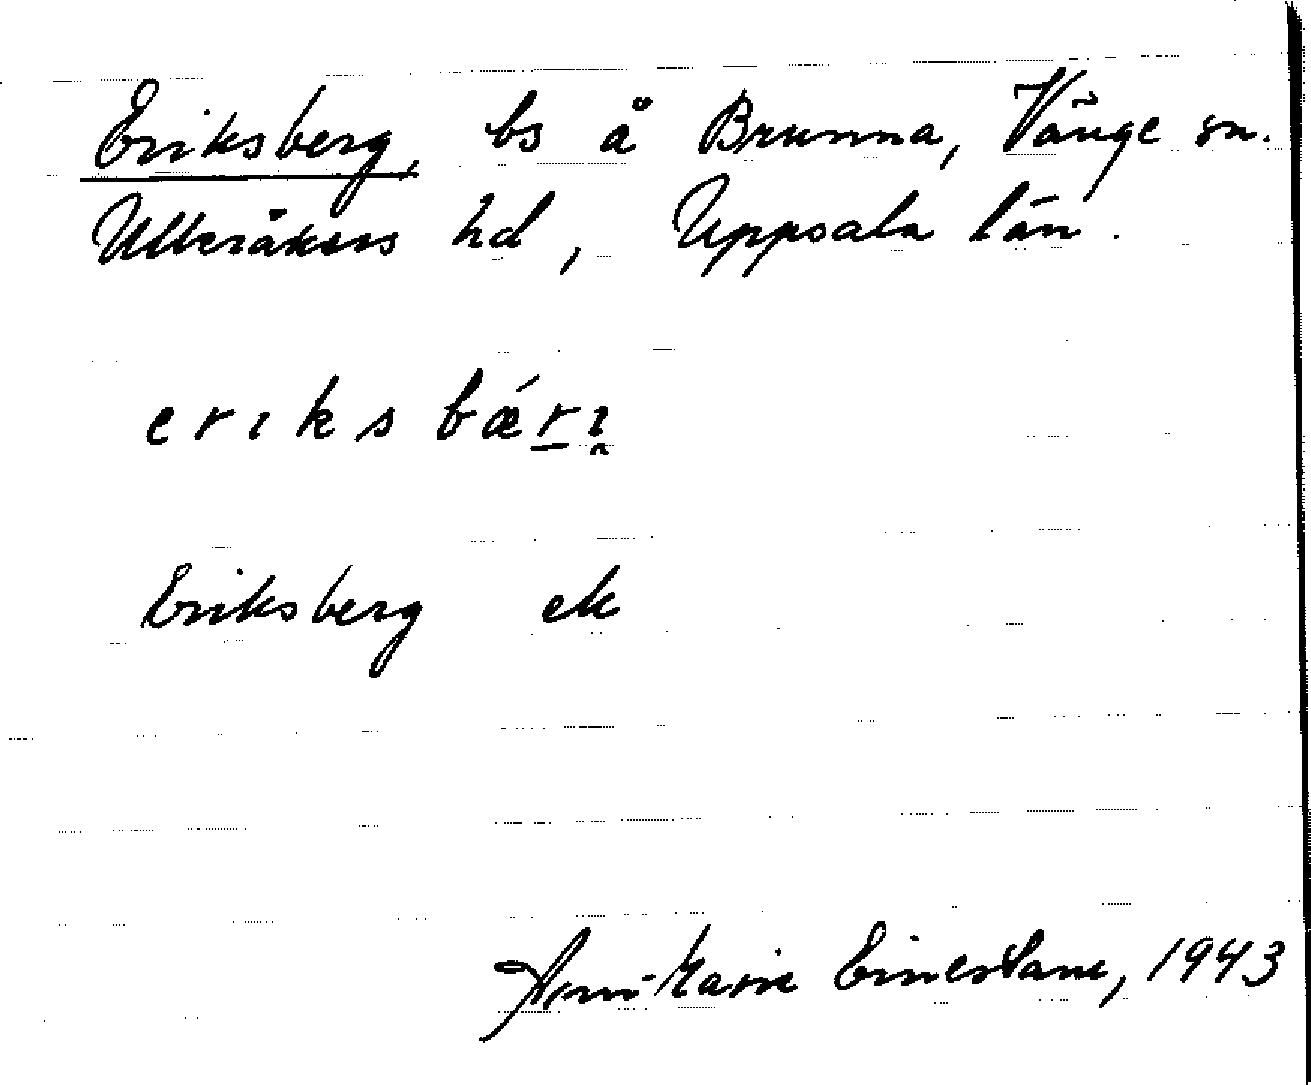 Eriksberg, bs å Brunna, Vänge sn.
Ulleråkers hd, Uppsala län.
eriksbǽri̯
Eriksberg ek
Ann-Marie 1943